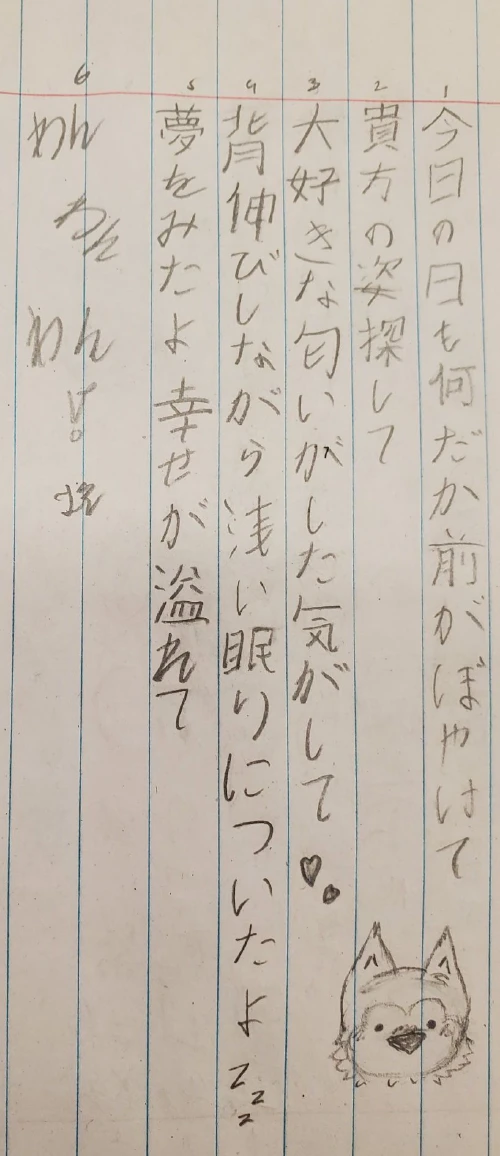 1 今日の日も何だか前がぼやけて
2 貴方の姿探して
3 大好きな匂いがした気がして
4 背伸びしながら浅い眠りについたよ zzz
5 夢をみたよ 幸せが溢れて
6 わん わん わん!